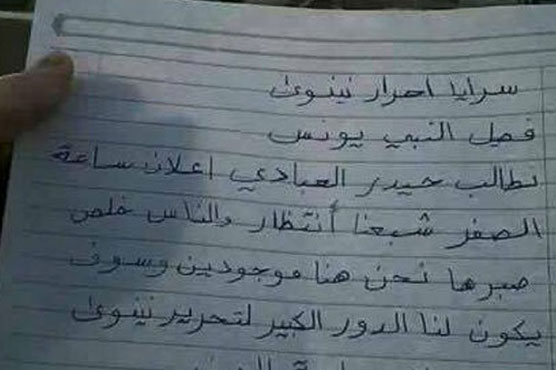 سرايا احرار نينوى
فصيل النبي يونس
نطالب حيدر العبادي اعلان ساعة
الصفر شبعنا أنتظار والناس خلص
صبرها نحن هنا موجودين وسوف
يكون لنا الدور الكبير لتحرير نينوى